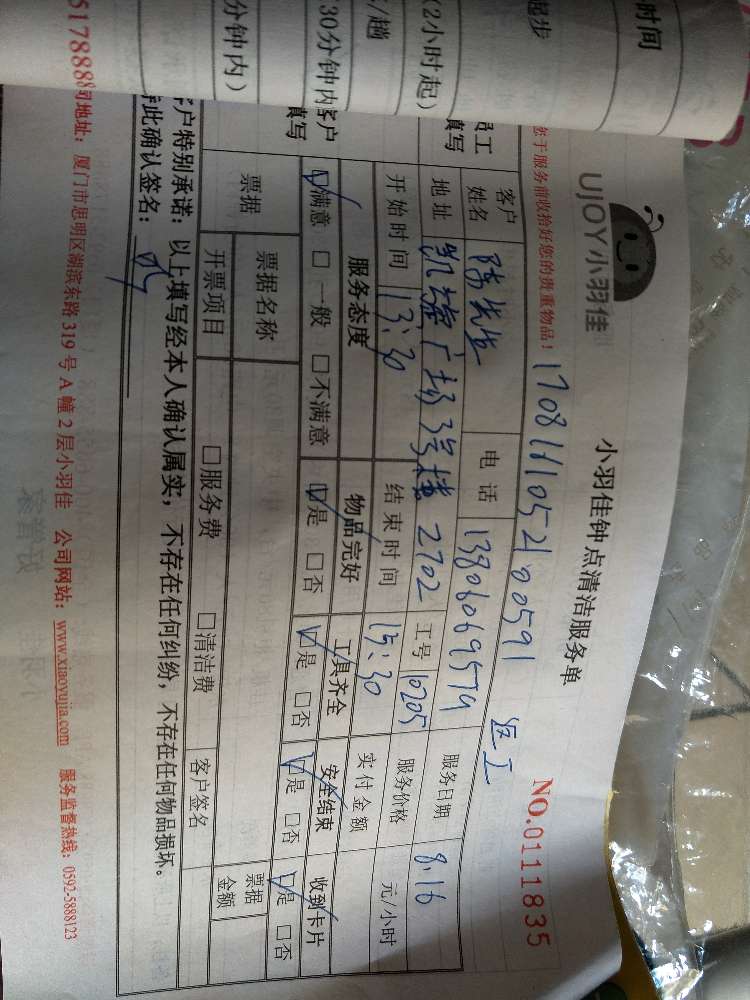 时间
起步
(2小时起)
/趟
30分钟内
分钟内)
UJOY小羽佳
小羽佳钟点清洁服务单
NO.0111835
于服务前收拾好您的贵重物品!
170811105210591 返工
员工填写
客户姓名 陈先生 电话 13806069579 服务日期 8.16
地址 凯旋广场 2702 工号 10705 服务价格 元/小时
开始时间 13:30 结束时间 15:30 实付金额
客户填写
服务态度 物品完好 工具齐全 安全结束 收到卡片
☑满意 □一般 □不满意 ☑是 □否 ☑是 □否 ☑是 □否 ☑是 □否
票据 票据名称 票据金额
开票项目 □服务费 □清洁费 客户签名
客户特别承诺:以上填写经本人确认属实,不存在任何纠纷,不存在任何物品损坏。
此确认签名:
517888 司地址:厦门市思明区湖滨东路319号A幢2层小羽佳 公司网站:www.xiaoyujia.com 服务监督热线:0592-5888123